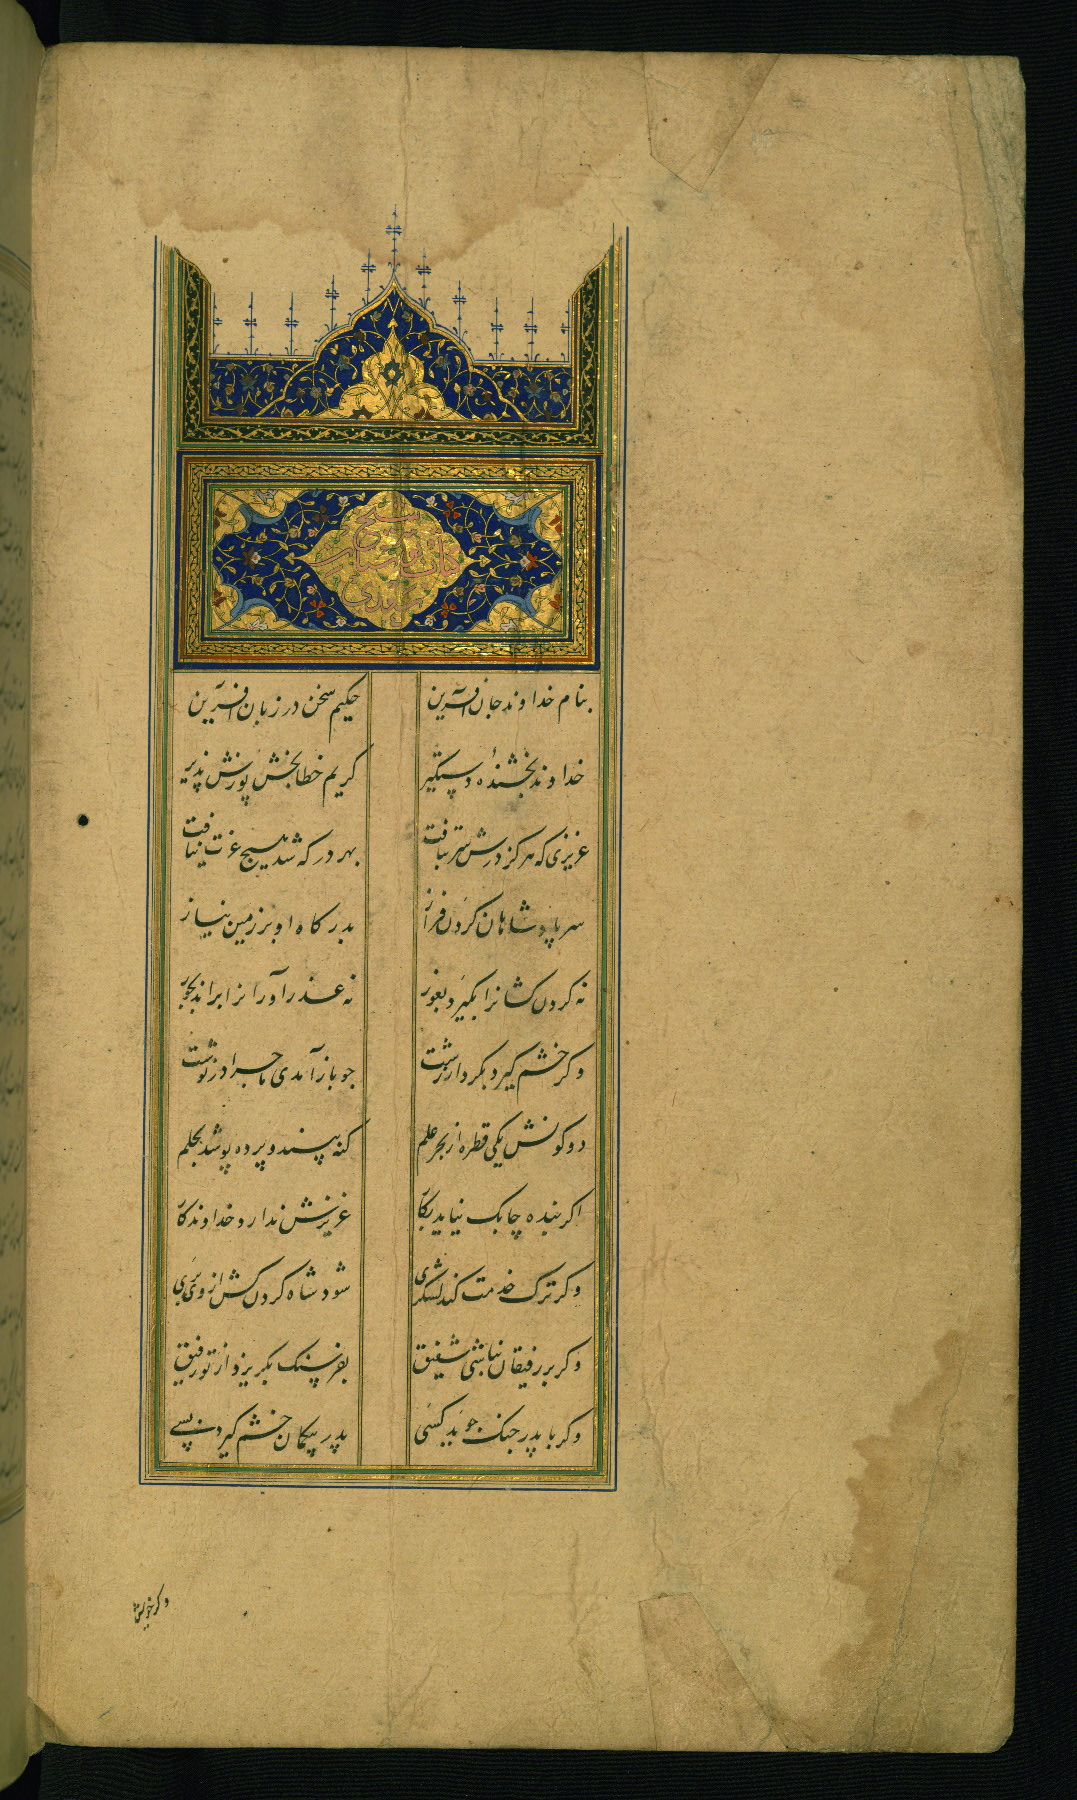 کتاب بوستان شیخ
سعدی
بنام خداوند جان آفرین حکیم سخن در زبان آفرین
خداوند بخشندهٔ دستگیر کریم خطابخش پوزش پذیر
عزیزی که هرکز درش سر بتافت بهر در که شد هیچ عزت نیافت
سر پادشاهان کردن فراز بدرکاه او بر زمین نیاز
نه کردن کشانرا بکیرد بفور نه عذرآورانرا براند بجور
وکر خشم کیرد بکردار زشت جو بازآمدی ماجرا در نوشت
دو کونش یکی قطره از بحر علم کنه بیند و پرده پوشد بحلم
اکر بنده چابک نیاید بکار عزیزش ندارد خداوندکار
وکر ترک خدمت کند لشکری شود شاه کردن کش از وی بری
وکر بر رفیقان نباشی شفیق بفرسنک بکریزد از تو رفیق
وکر با پدر جنک جوید کسی پدر بیکمان خشم کیرد بسی
وکر خویش